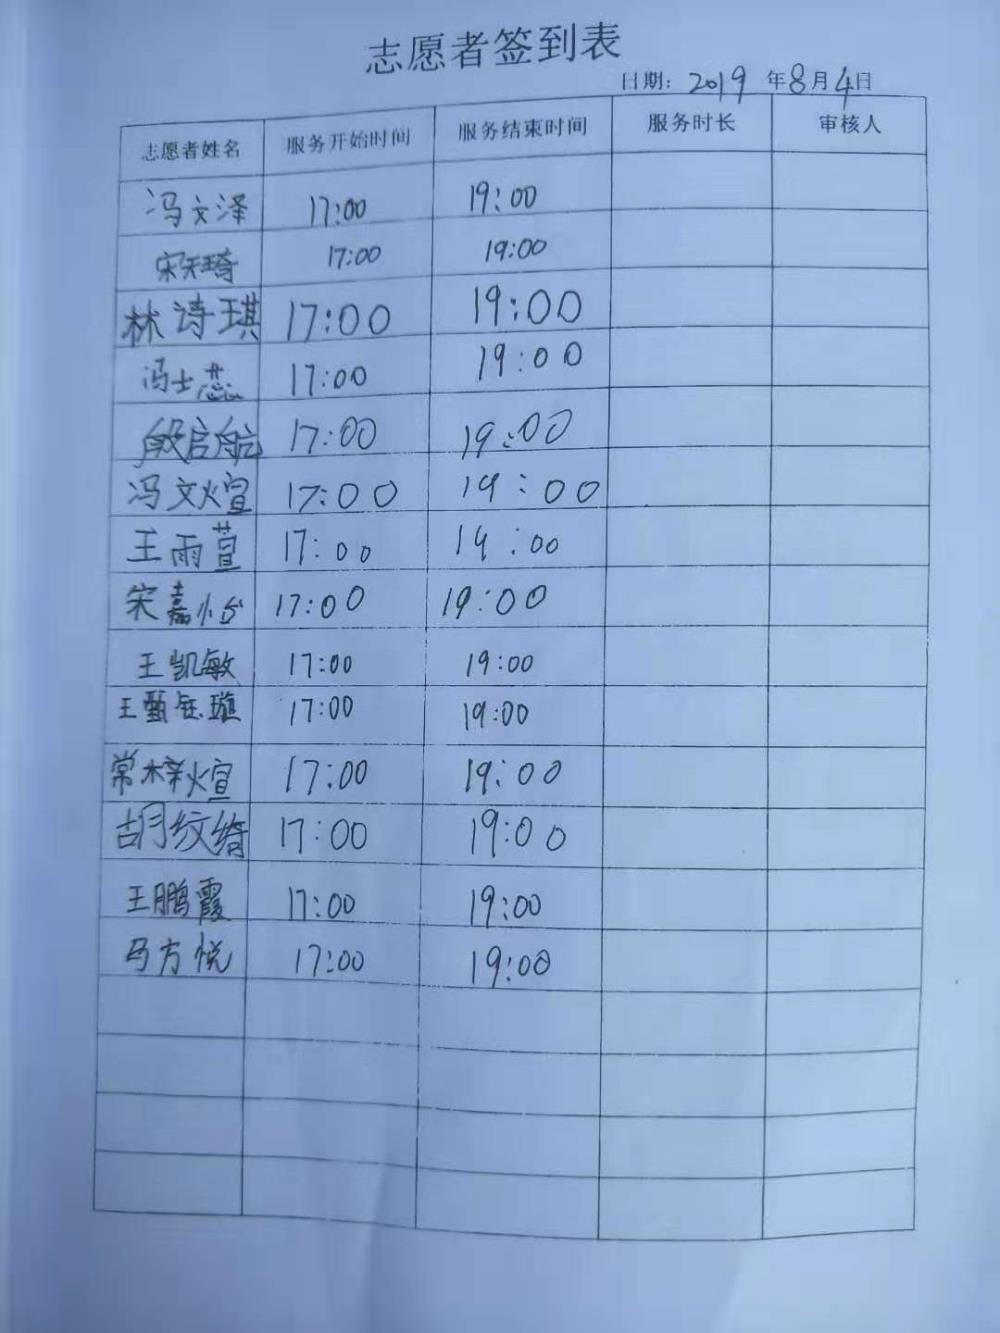 志愿者签到表
日期: 2019 年8月4日
志愿者姓名 服务开始时间 服务结束时间 服务时长 审核人
冯文泽 17:00 19:00
宋天琦 17:00 19:00
林诗琪 17:00 19:00
冯士蕊 17:00 19:00
殷启航 17:00 19:00
冯文煊 17:00 19:00
王雨萱 17:00 19:00
宋嘉怡 17:00 19:00
王凯敏 17:00 19:00
王甄钰璇 17:00 19:00
常梓煊 17:00 19:00
胡纹绮 17:00 19:00
王鹏霞 17:00 19:00
马方悦 17:00 19:00